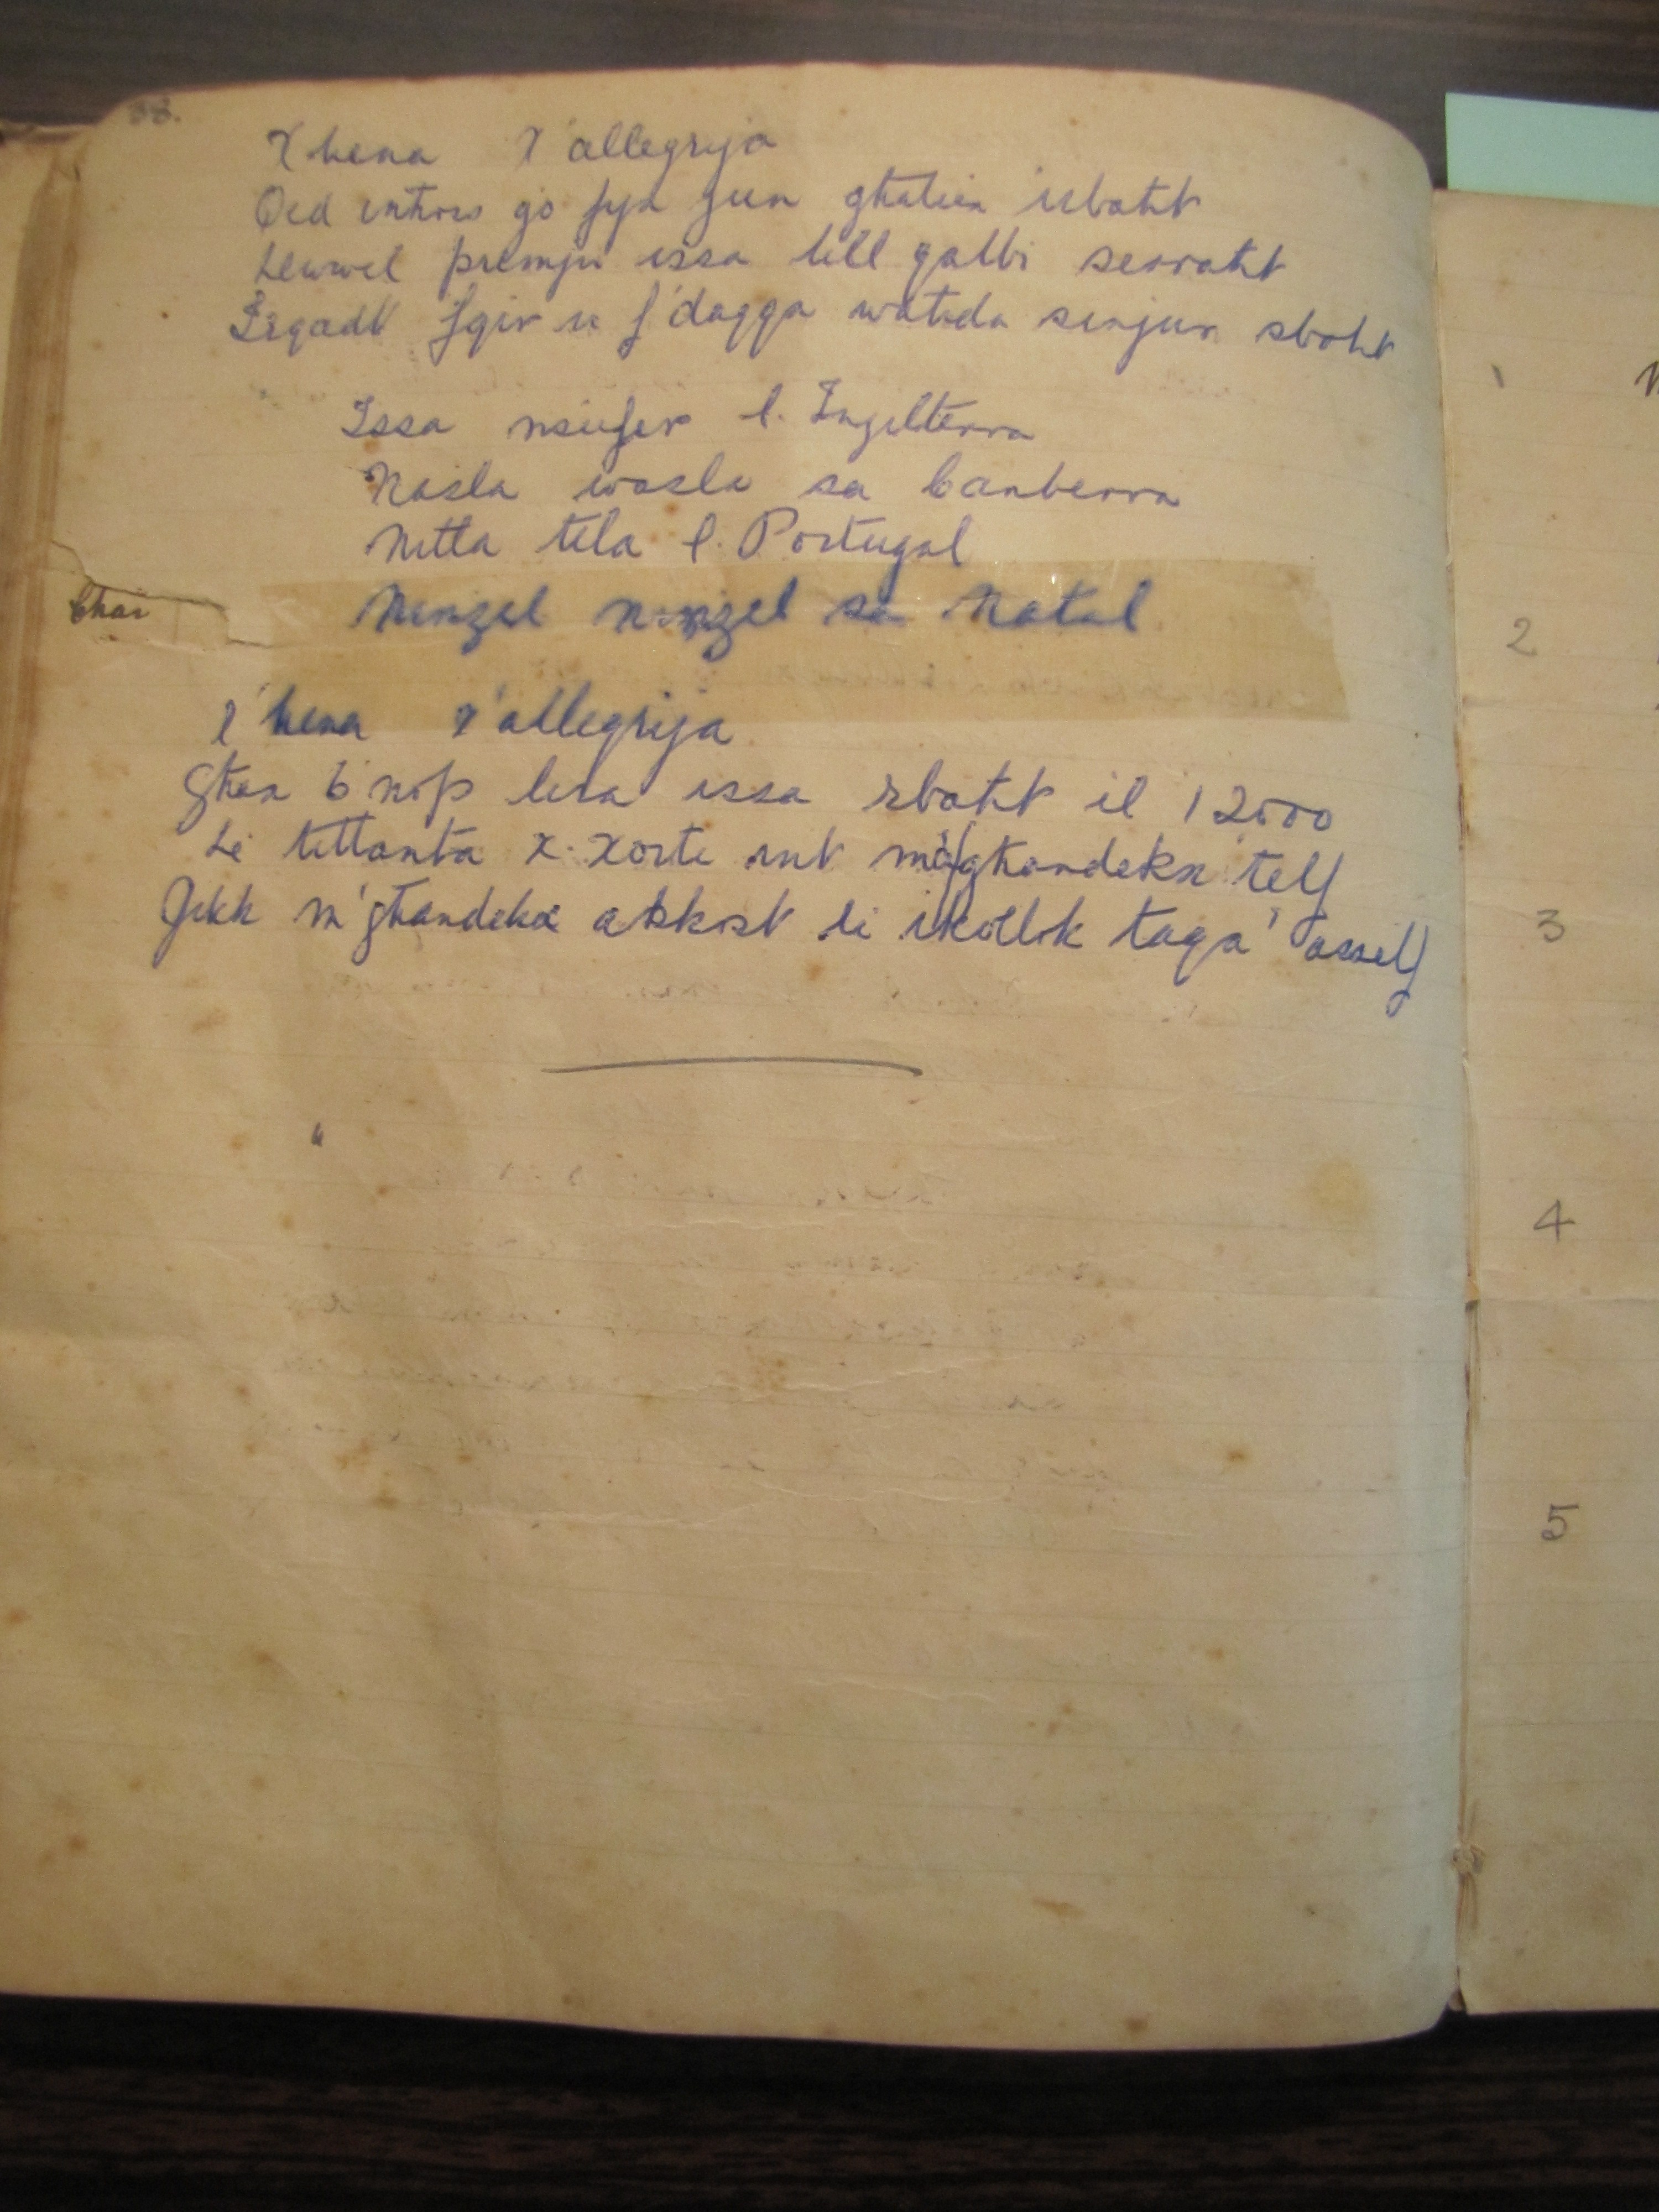 88.
X hena X'allegrija
Qed intom go fija jien ghaliex irbaħt
Lewwel premju issa lill qalbi serraħt
Irqadt fqir u f'daqqa waħda sinjur sbaħt
Issa nsiefer l. Ingilterra
Nasla wasla sa Canberra
Nitla tila l. Portugal
Ninzel ninzel sa Natal
X'hena X'allegrija
Għan b'nofs lira issa rbaħt il 12000
Li tittanta x-xorti int m'għandekx telf
Jekk m'għandekx akkost li ikollok taqa' asself
1
2
3
4
5